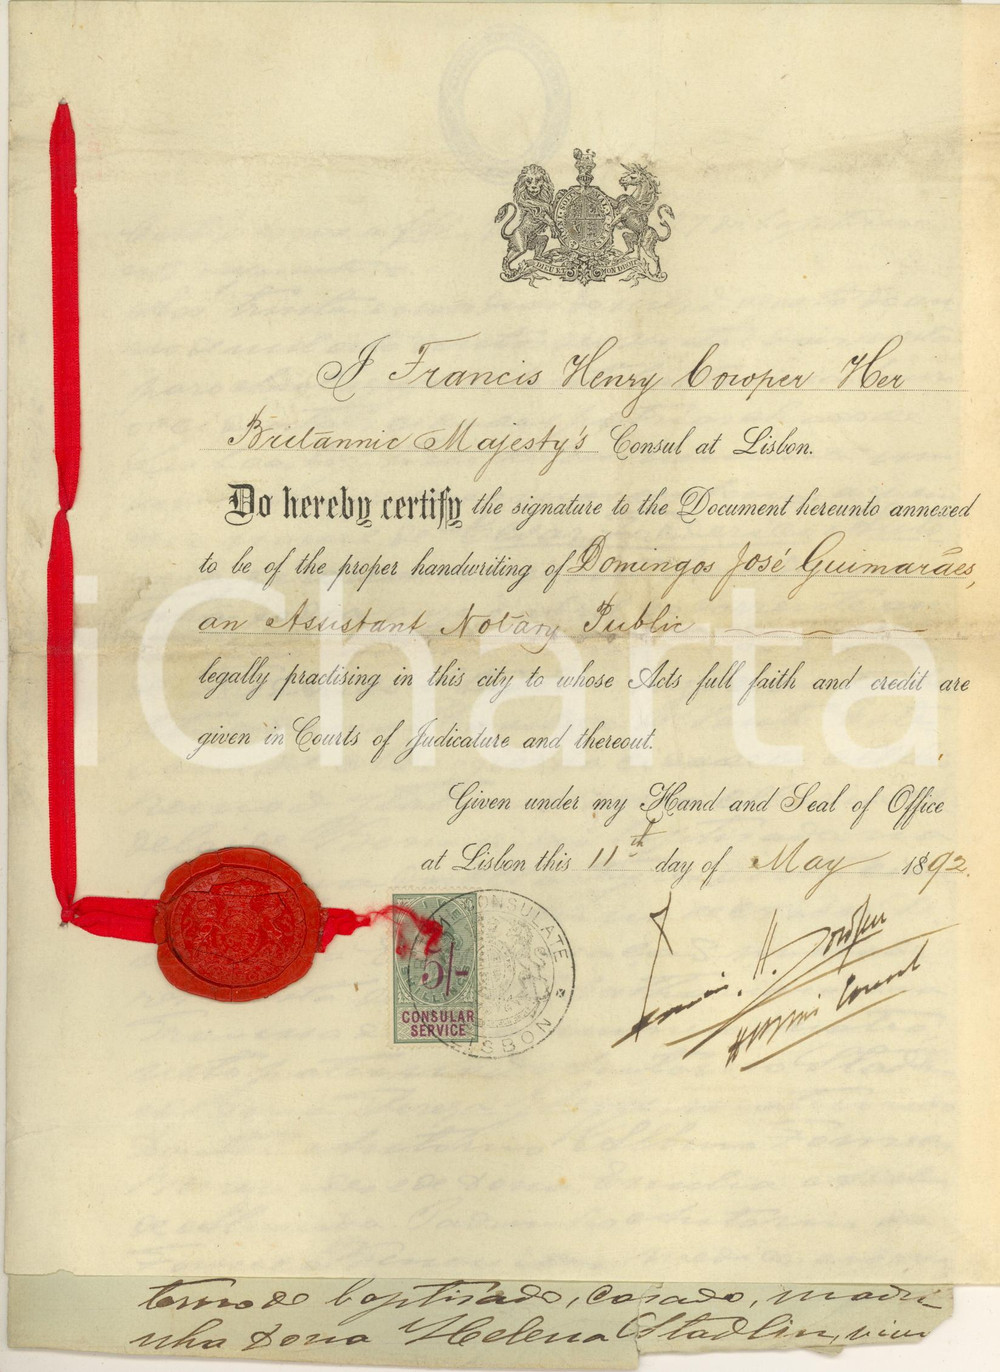 DIEU ET MON DROIT
I Francis Henry Cowper Her
Britannic Majesty's Consul at Lisbon.
Do hereby certify the signature to the Document hereunto annexed
to be of the proper handwriting of Domingos José Guimarães,
an Assistant Notary Public
legally practising in this city to whose Acts full faith and credit are
given in Courts of Judicature and thereout.
Given under my Hand and Seal of Office
at Lisbon this 11th day of May 1892.
5/-
CONSULAR
SERVICE
CONSULATE
LISBON
H. Cowper
Consul
iCharta
termo de baptisado, casado, madri-
nha Dona Helena Stadlin, viuv